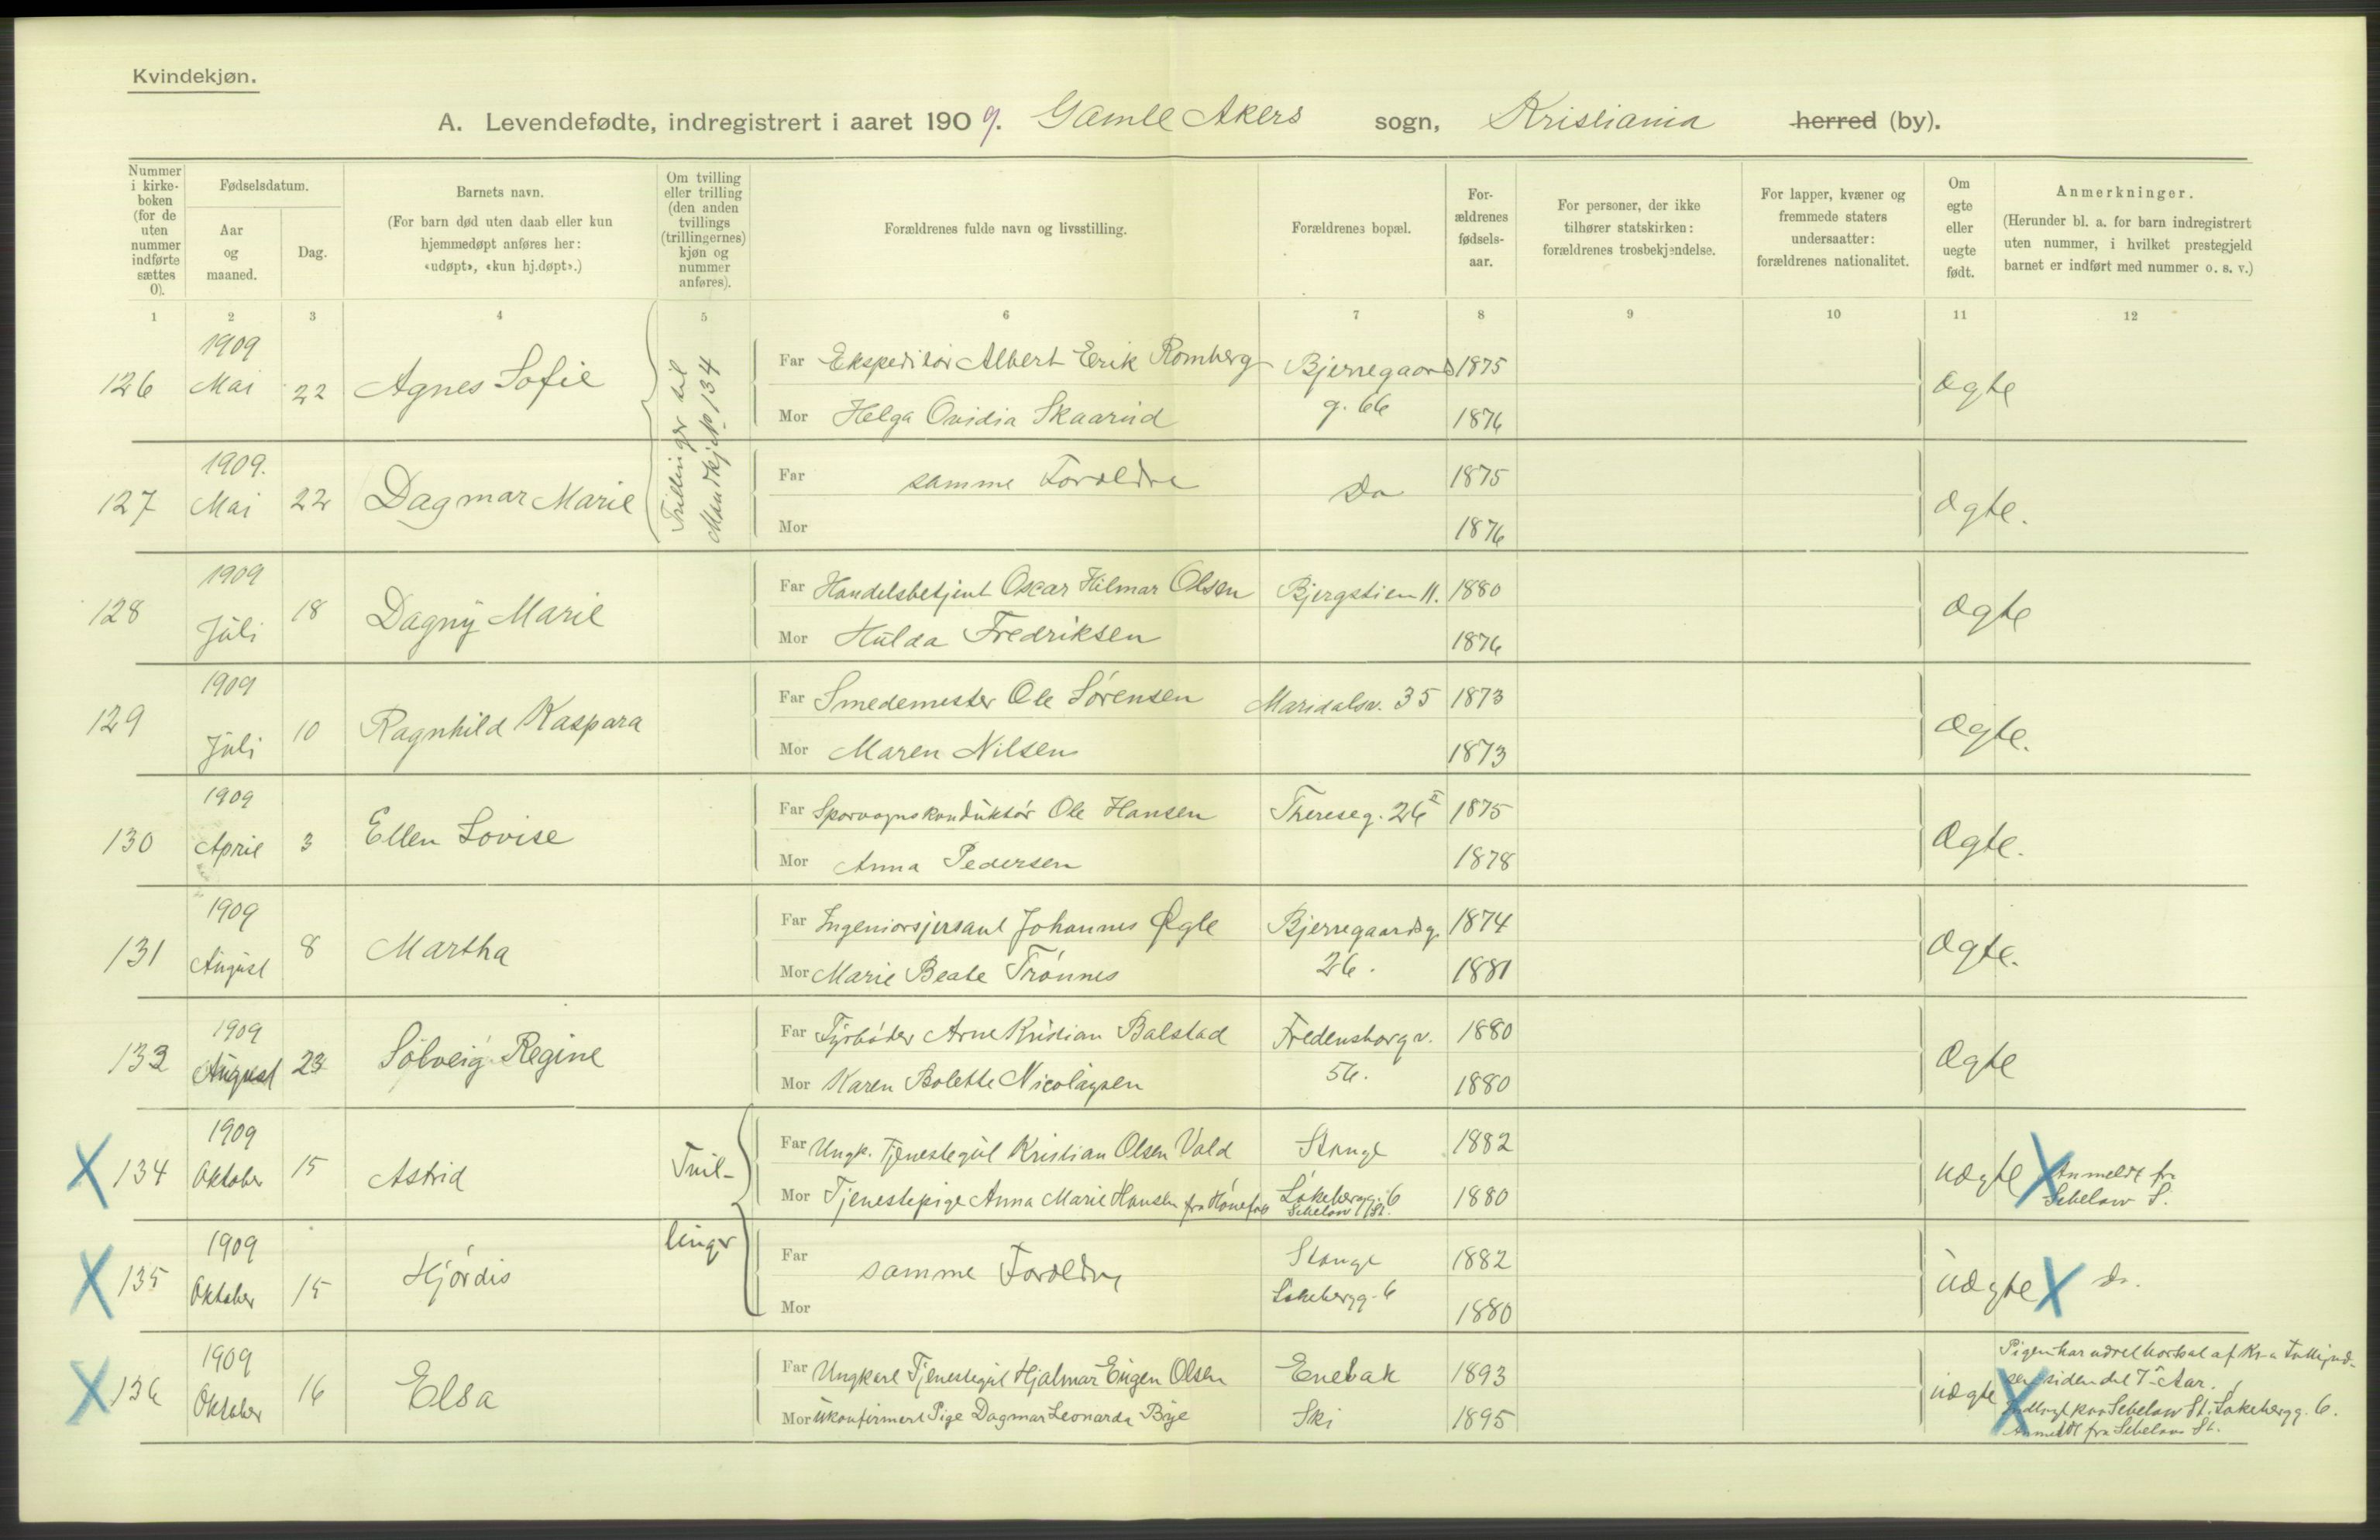 Kvindekjøn.
A. Levendefødte, indregistrert i aaret 1909. Gamle Akers sogn, Kristiania herred (by).
Nummer i kirke-boken (for de uten nummer indførte sættes 0).
Fødselsdatum.
Aar og maaned.
Dag.
Barnets navn.
(For barn død uten daab eller kun hjemmedøpt anføres her: «udøpt», «kun hj.døpt».)
Om tvilling eller trilling (den anden tvillings (trillingernes) kjøn og nummer anføres).
Forældrenes fulde navn og livsstilling.
Forældrenes bopæl.
For-ældrenes fødsels-aar.
For personer, der ikke tilhører statskirken: forældrenes trosbekjendelse.
For lapper, kvæner og fremmede staters undersaatter: forældrenes nationalitet.
Om egte eller uegte født.
Anmerkninger.
(Herunder bl. a. for barn indregistrert uten nummer, i hvilket prestegjeld barnet er indført med nummer o. s. v.)
1 2 3 4 5 6 7 8 9 10 11 12
126 1909 Mai 22 Agnes Sofie
Trillinger til Mandkj. No 134
Far Ekspeditør Albert Erik Romberg Bjerregaards 1875
Mor Helga Ovidia Skaarud g. 66 1876
ægte
127 1909. Mai 22 Dagmar Marie
Far samme Forældre Do 1875
Mor 1876
ægte.
128 1909 Juli 18 Dagny Marie
Far Handelsbetjent Oscar Hilmar Olsen Bjergstien 11. 1880
Mor Hulda Fredriksen 1876
ægte
129 1909 Juli 10 Ragnhild Kaspara
Far Smedemester Ole Sørensen Maridalsv. 35 1873
Mor Maren Nilsen 1873
ægte.
130 1909 April 3 Ellen Lovise
Far Sporvognskonduktør Ole Hansen Thereseg. 26 II 1875
Mor Anna Pedersen 1878
ægte.
131 1909 August 8 Martha
Far Ingeniørsjersant Johannes Øgle Bjerregaardsg. 1874
Mor Marie Beate Trønnes 26. 1881
ægte.
133 1909 August 23 Solveig Regine
Far Fyrbøder Arne Kristian Balstad Fredensborgv. 1880
Mor Karen Bolette Nicolaysen 56. 1880
ægte
X 134 1909 Oktober 15 Astrid Tvil-
Far Ungk. Tjenestegut Kristian Olsen Vald Stange 1882
Mor Tjenestepige Anna Marie Hansen fra Hønefos Lakkebergg. 6 Schelow St. 1880
uægte X Anmeldt fra Schelow S.
X 135 1909 Oktober 15 Hjørdis linger
Far samme Forældre Stange 1882
Mor Lakkebergg. 6 1880
uægte X do.
X 136 1909 Oktober 16 Elsa
Far Ungkarl Tjenestegut Hjalmar Eugen Olsen Enebak 1893
Mor ukonfirmert Pige Dagmar Leonarda Bye Ski 1895
uægte X Pigen har været bortsat af Kr.a
siden det 7de Aar.
Indlagt paa Schelow St. Lakkebergg. 6.
Anmeldt fra Schelow St.